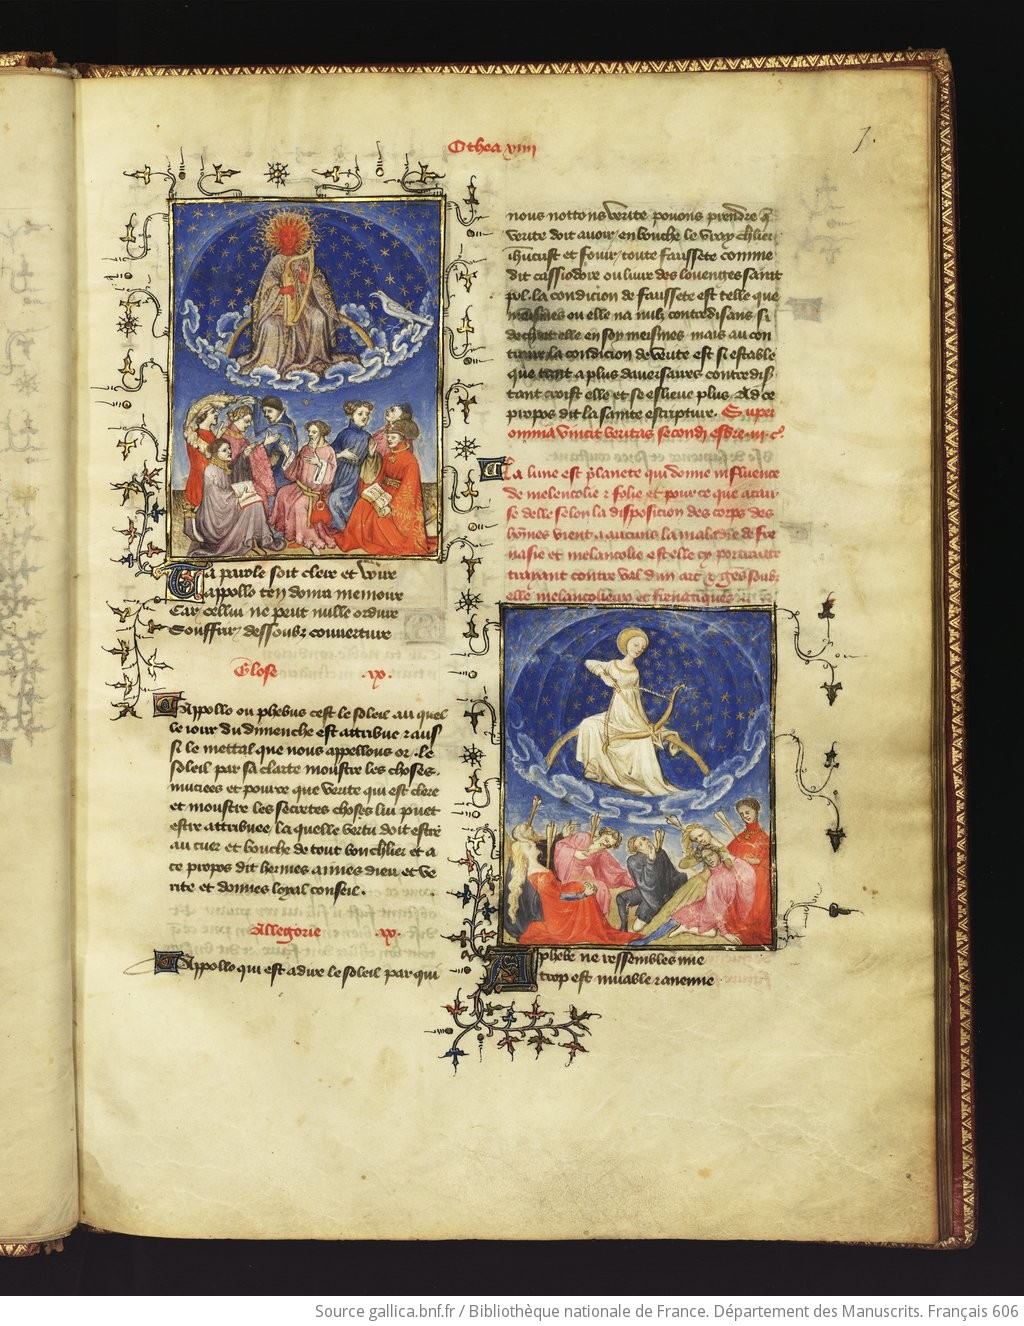 Othea viiii
7.
Ta parole soit clere et vraie
Appollo ten donra memoire
Car cellui ne peut nulle ordure
Souffrir dessoubz couverture
Glose .ix.
Appollo ou phebus cest le soleil au quel
le iour du dimenche est attribue & aus
si le mettal que nous appellons or. le
soleil par sa clarte moustre les choses
muciees et pource que verite qui est clere
et moustre les secretes choses lui puet
estre attribuee, la quelle vertu doit estre
au cuer et bouche de tout bon chlier et a
ce propos dit hermes aimes dieu et ve
rite et donnes loyal conseil.
Allegorie .ix.
Appollo qui est a dire le soleil par qui
nous nottons verite povons prendre q̃
verite doit avoir en bouche le vray chlier
ihũcrist et fouir toute faussete comme
dit cassiodore ou livre des louenges saint
pol. la condicion de faussete est telle que
meismes ou elle na nulz contredisans si
dechiet elle en soy meismes mais au con
traire la condicion de verite est si estable
que tant a plus daversaires contredis
tant croist elle et se eslieve plus. Ad ce
propos dit la sainte escripture. Super
omnia vincit veritas secondi esdre .iii. c.
La lune est planete qui donne influence
de melencolie & folie et pour ce que acau
se delle selon la disposition des corps des
hõmes vient a aucuns la maladie de fre
nasie et melancolie est elle cy pourtraite
traiant contre val dun arc & gens soubz
elle melancolieux et frenatiques
A phebe ne ressembles mie
trop est muable & anemie
Source gallica.bnf.fr / Bibliothèque nationale de France. Département des Manuscrits. Français 606